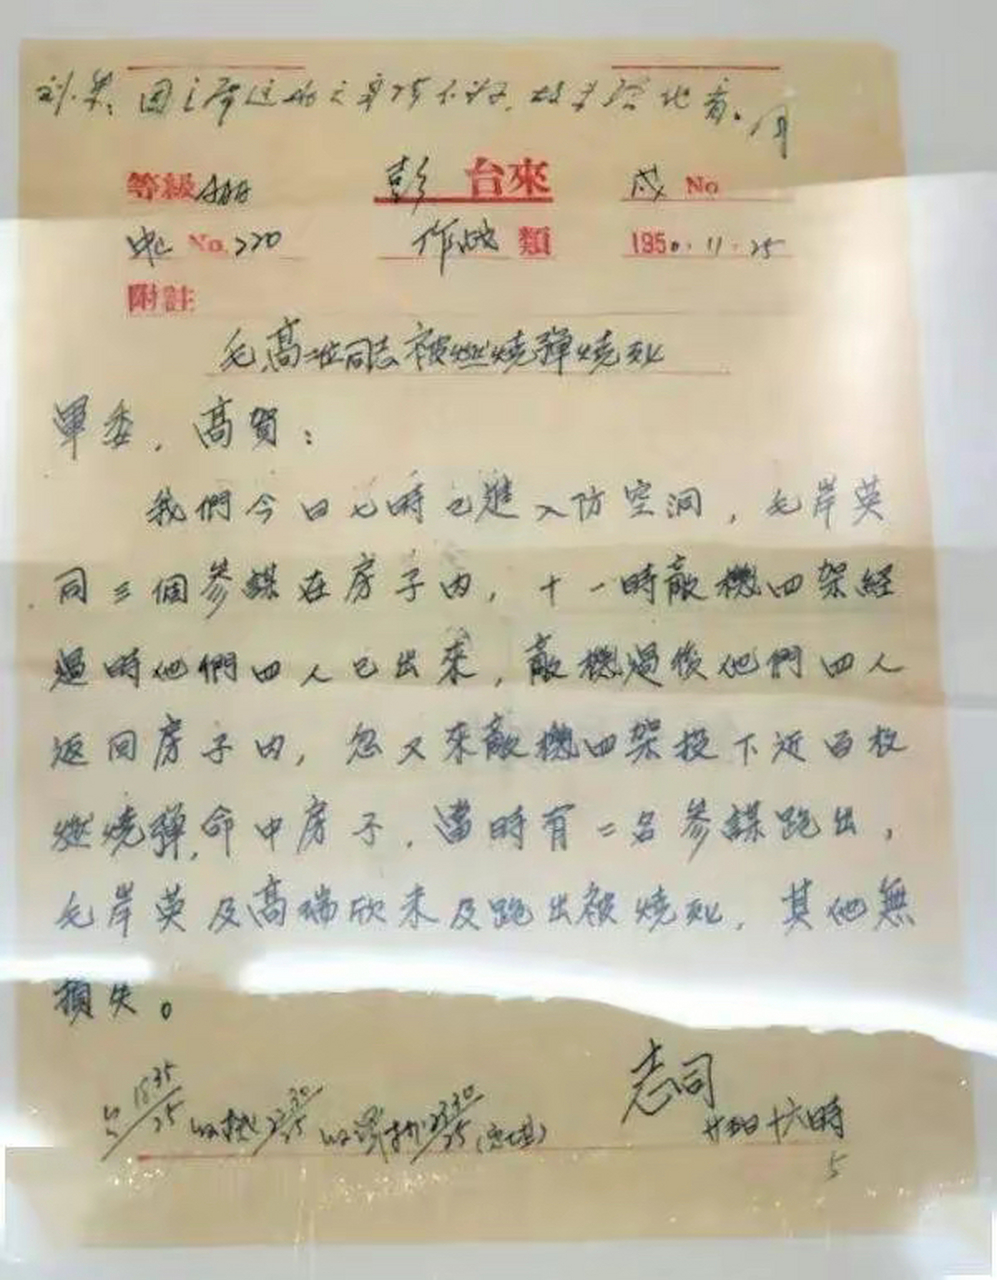 刘、朱：因主席这两天身体不好，故未给他看。周
等級AAAA 彭 台來 戌 No
电 No.220 作战 類 1950.11.25
附註
毛高二位同志被燃燒彈燒死
軍委，高賀：
我們今日七時已進入防空洞，毛岸英
同三個參謀在房子内，十一時敵機四架經
過時他們四人已出來，敵機過後他們四人
返回房子内，忽又來敵機四架投下近百枚
燃燒彈，命中房子，當時有二名參謀跑出，
毛岸英及高瑞欣未及跑出被燒死，其他無
損失。
志司
廿五日十六時
1835/25 2230/25 2330/25
5